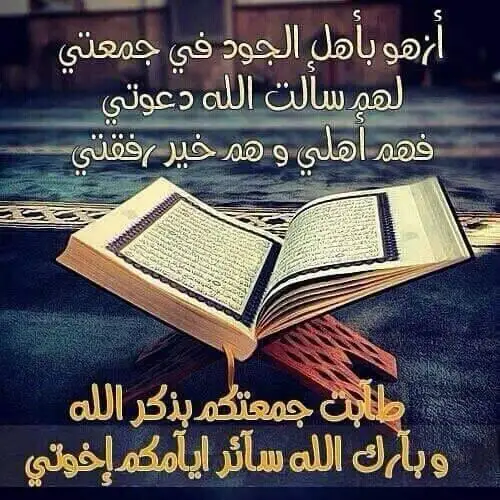 أزهو بأهل الجود في جمعتي
لهم سألت الله دعوتي
فهم أهلي و هم خير رفقتي
طآبت جمعتكم بذكر الله
و بآرك الله سآئر ايآمكم إخوتي